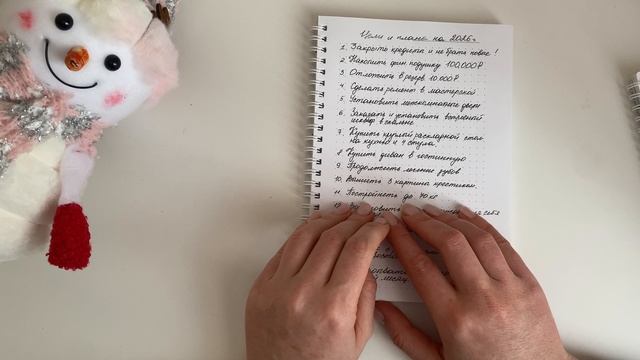 Цели и планы на 2026г
1. Закрыть кредиты и не брать новые!
2. Накопить фин. подушку 100,000₽
3. Отложить в резерв 10 000₽
4. Сделать ремонт в мастерской
5. Установить межкомнатные двери
6. Заказать и установить встроенный
шкаф в спальне
7. Купить круглый раскладной стол
на кухню и 4 стула.
8. Купить диван в гостинную
9. Продолжить лечение зубов
10. Вышить 3 картины крестиком.
11. Постройнеть до 70кг
12. себя